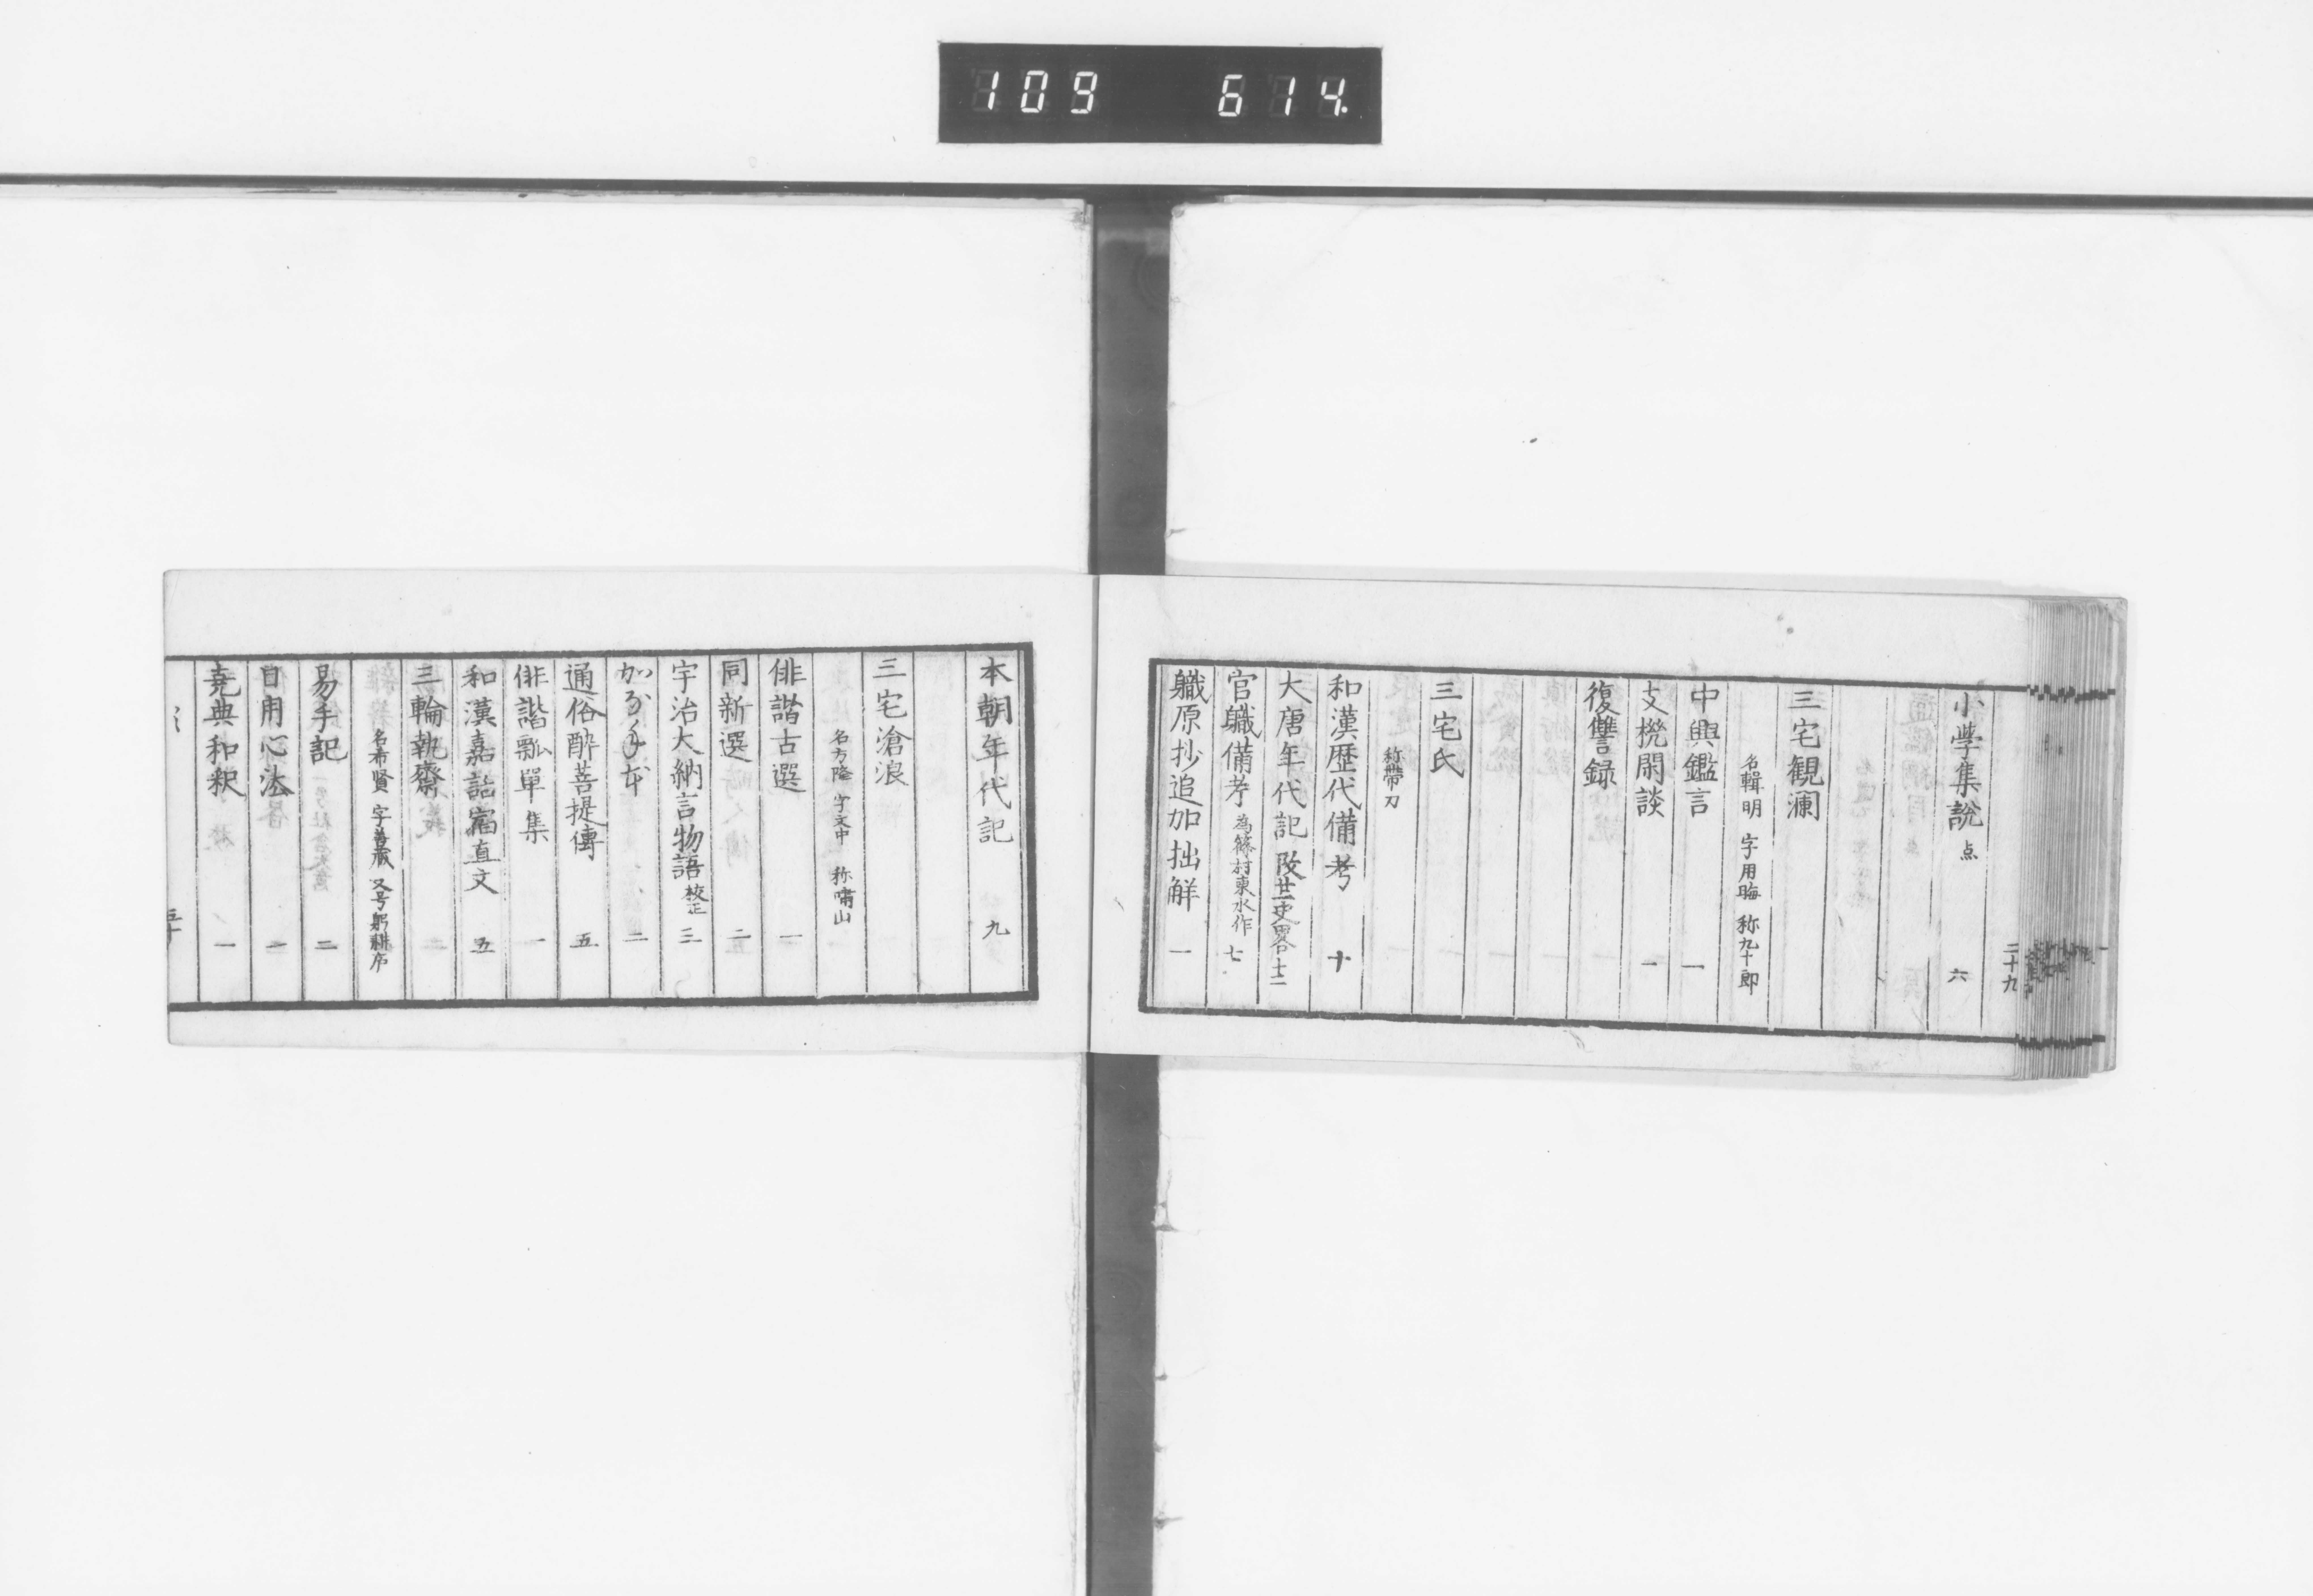 109 614.
三十九
小学集說 点 六
三宅観瀾
名輯明 字用晦 称九十郎
中興鑑言 一
支機閑談 一
復讐録
三宅氏
称帶刀
和漢歷代備考 十
大唐年代記 改廿一史畧合 十二
官職備考 為篠村東水作 七
職原抄追加拙解 一
本朝年代記 九
三宅滄浪
名方隆 字文中 称嘯山
俳諧古選 一
同新選 二
宇治大納言物語 校正 三
二
通俗酔菩提傳 五
俳諧瓢單集 一
和漢嘉話宿直文 五
三輪執齋
名希賢 字善蔵 又号躬耕庐
易手記 二
日用心法 一
堯典和釈 一
五十